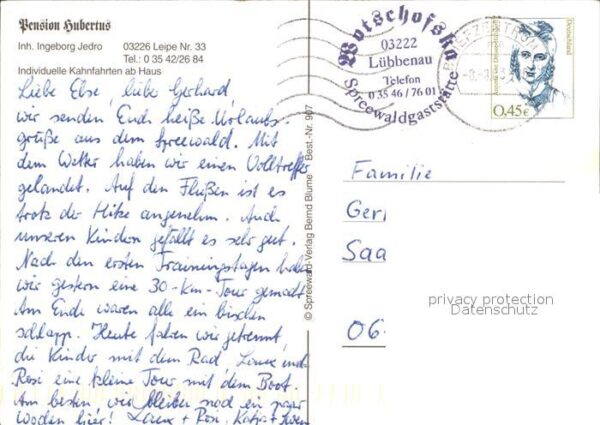 Pension Hubertus
Inh. Ingeborg Jedro 03226 Leipe Nr. 33
Tel.: 0 35 42/26 84
Individuelle Kahnfahrten ab Haus
Liebe Else, liebe Gerhard,
wir senden Euch heiße Urlaubs-
grüße aus dem Spreewald. Mit
dem Wetter haben wir einen Volltreffer
gelandet. Auf den Flüßen ist es
trotz der Hitze angenehm. Auch
unseren Kindern gefällt es sehr gut.
Nach den ersten Trainingstagen haben
wir gestern eine 30-Km-Tour gemacht
Am Ende waren alle ein bischen
schlapp. Heute fahren wir getrennt,
die Kinder mit dem Rad, und
Rosi eine kleine Tour mit dem Boot.
Am besten wir bleiben noch ein paar
Wochen hier! + Rosi, Katja +
© Spreewald-Verlag Bernd Blume · Best.-Nr. 907
Wotschofska
03222
Lübbenau
Telefon
0 35 46 / 76 01
Spreewaldgaststätte
BRIEFZENTRUM
Deutschland
0,45€
Familie
Gerl
Saa
06
privacy protection
Datenschutz